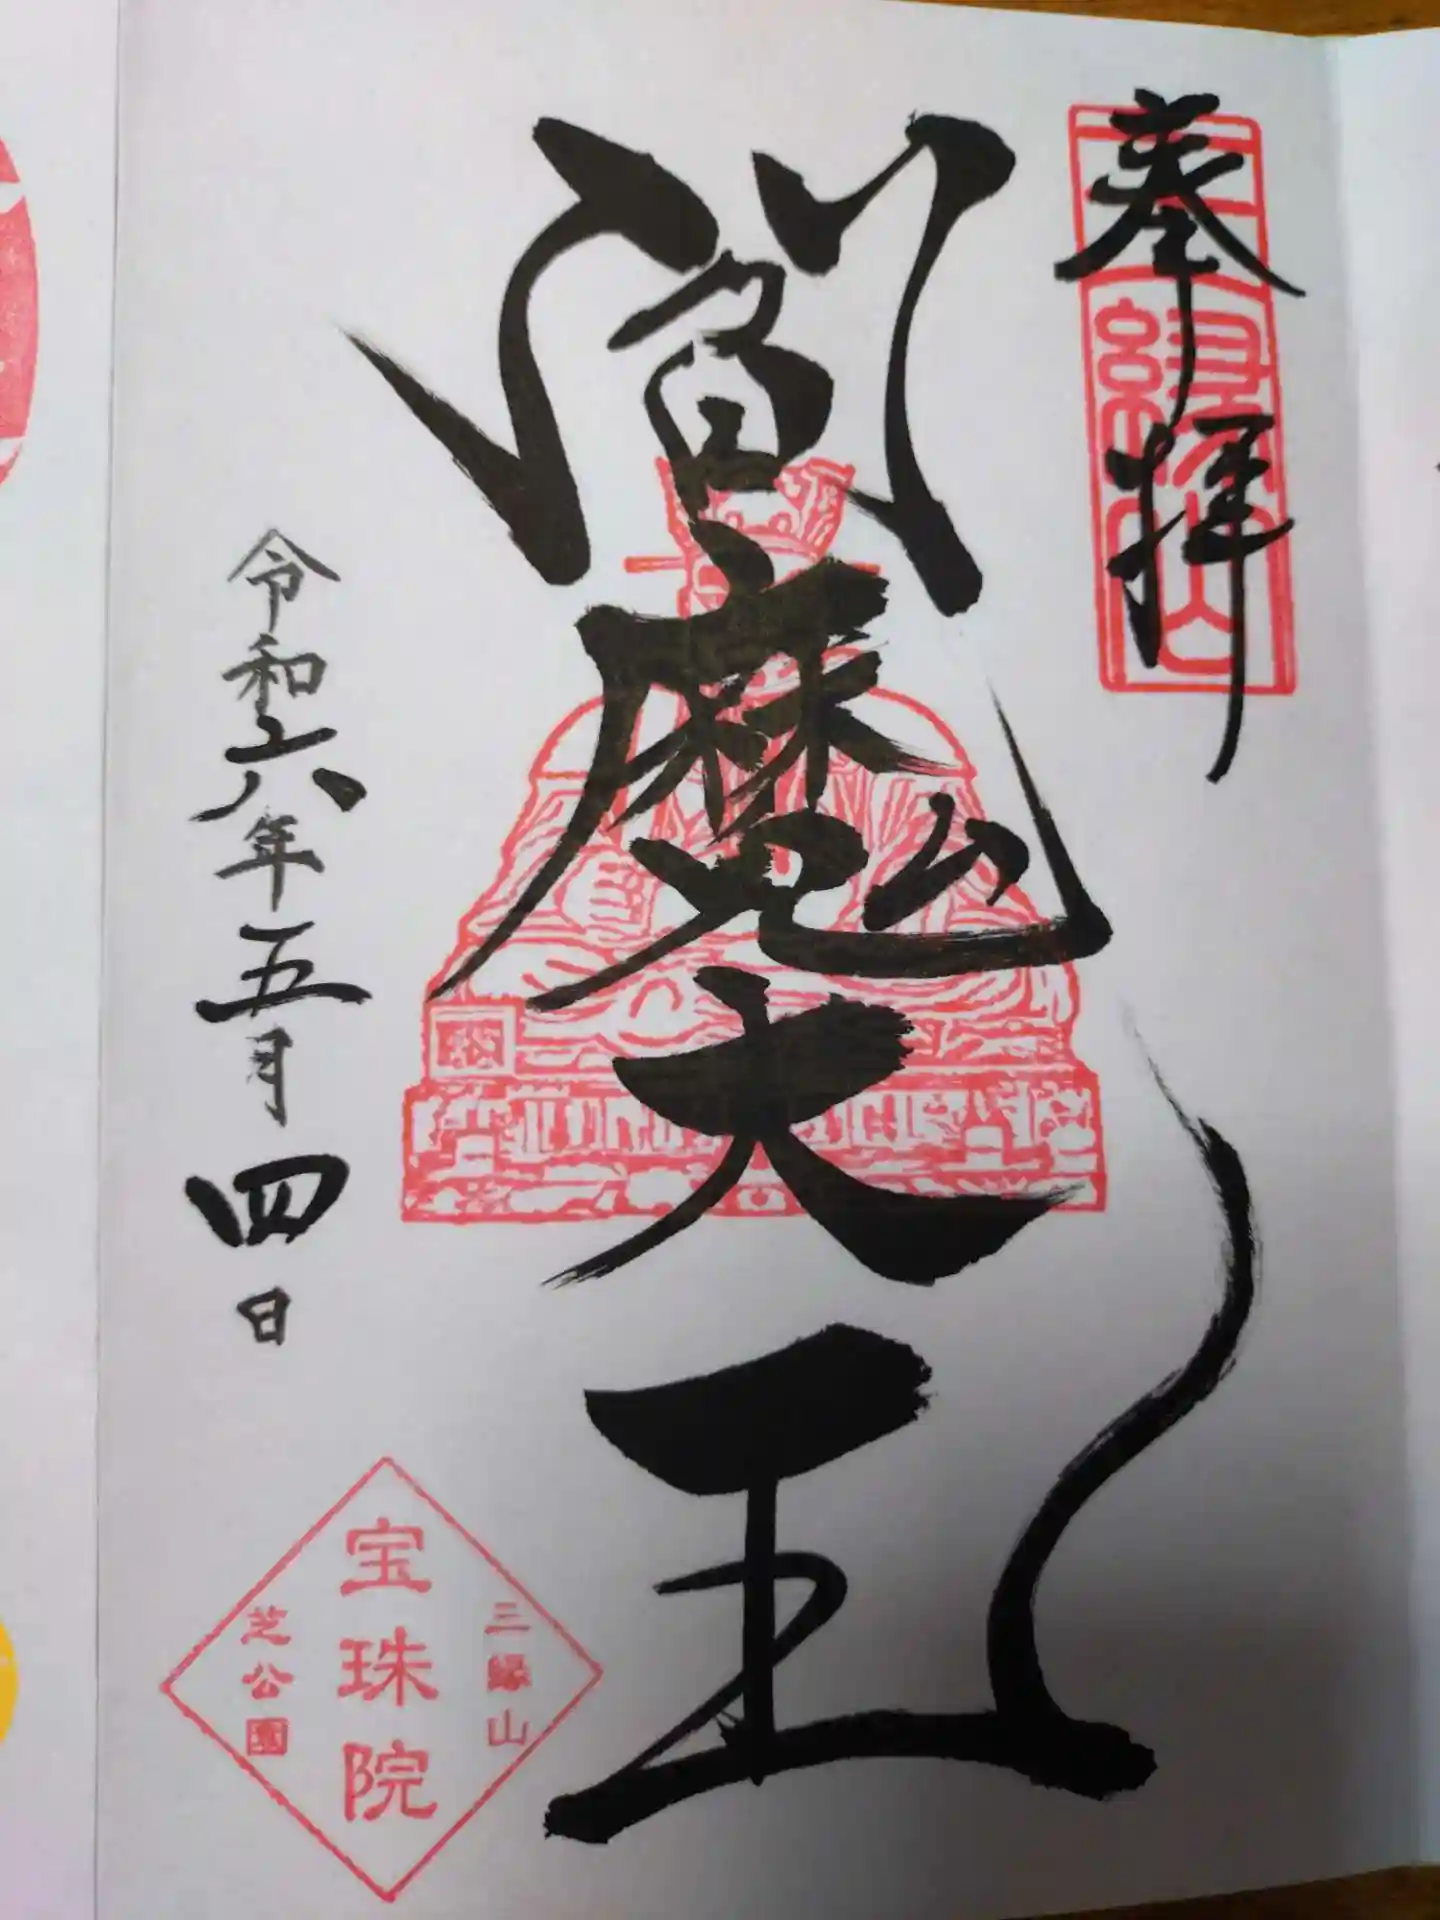 奉拝
三縁山
閻魔大王
令和六年五月四日
三縁山
宝珠院
芝公園